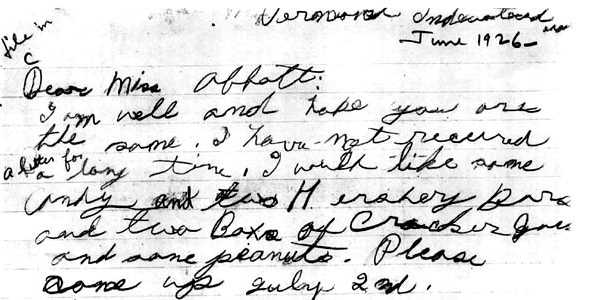 file in
C
June 1926
Dear Miss Abbott:
I am well and hope you are
the same. I have not received
a letter for a long time. I would like some
Candy and two Hershey Bars
and two Boxs of Cracker Jack
and some peanuts. Please
come up July 2nd.